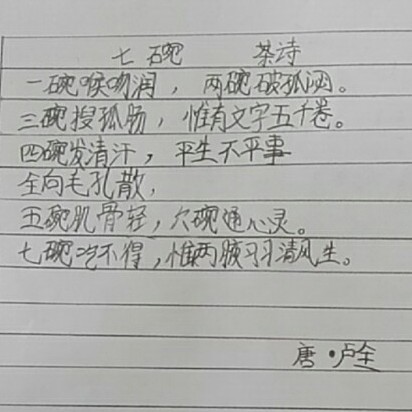 七碗 茶诗
一碗喉吻润，两碗破孤闷。
三碗搜孤肠，惟有文字五千卷。
四碗发清汗，平生不平事
全向毛孔散，
五碗肌骨轻，六碗通心灵。
七碗吃不得，惟两腋习习清风生。
唐·卢仝